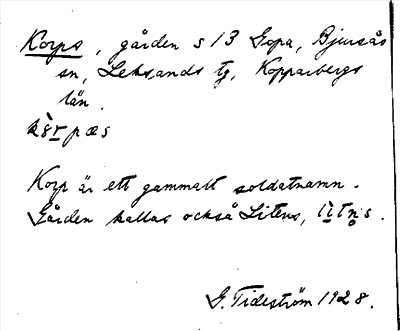 Korps, gården s 13 Gopa, Bjursås
sn, Leksands tg, Kopparbergs
län.
kårpæs
Korp är ett gammalt soldatnamn.
Gården kallas också Litens, lìtn̥s.
G. Tideström 1928.